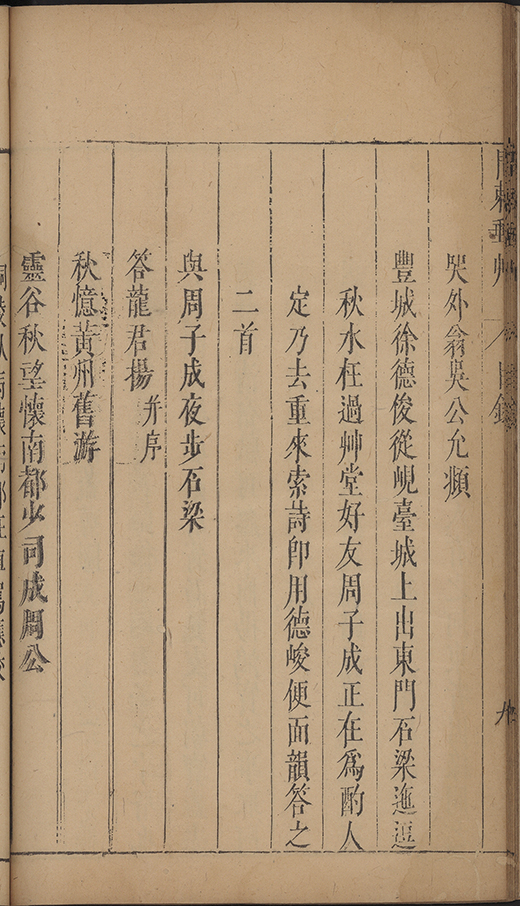 問棘郵艸
目錄
九
哭外翁吳公允頻
豐城徐德俊從峴臺城上出東門石梁迤逗
秋水枉過艸堂好友周子成正在爲酌人
定乃去重來索詩卽用德峻便面韻答之
二首
與周子成夜步石梁
答龍君揚并序
秋憶黃州舊游
靈谷秋望懷南都少司成周公